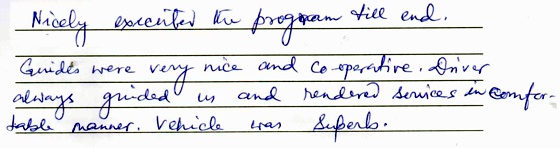 Nicely executed the program till end.
Guides were very nice and co-operative. Driver
always guided us and rendered services in comfor-
table manner. Vehicle was Superb.